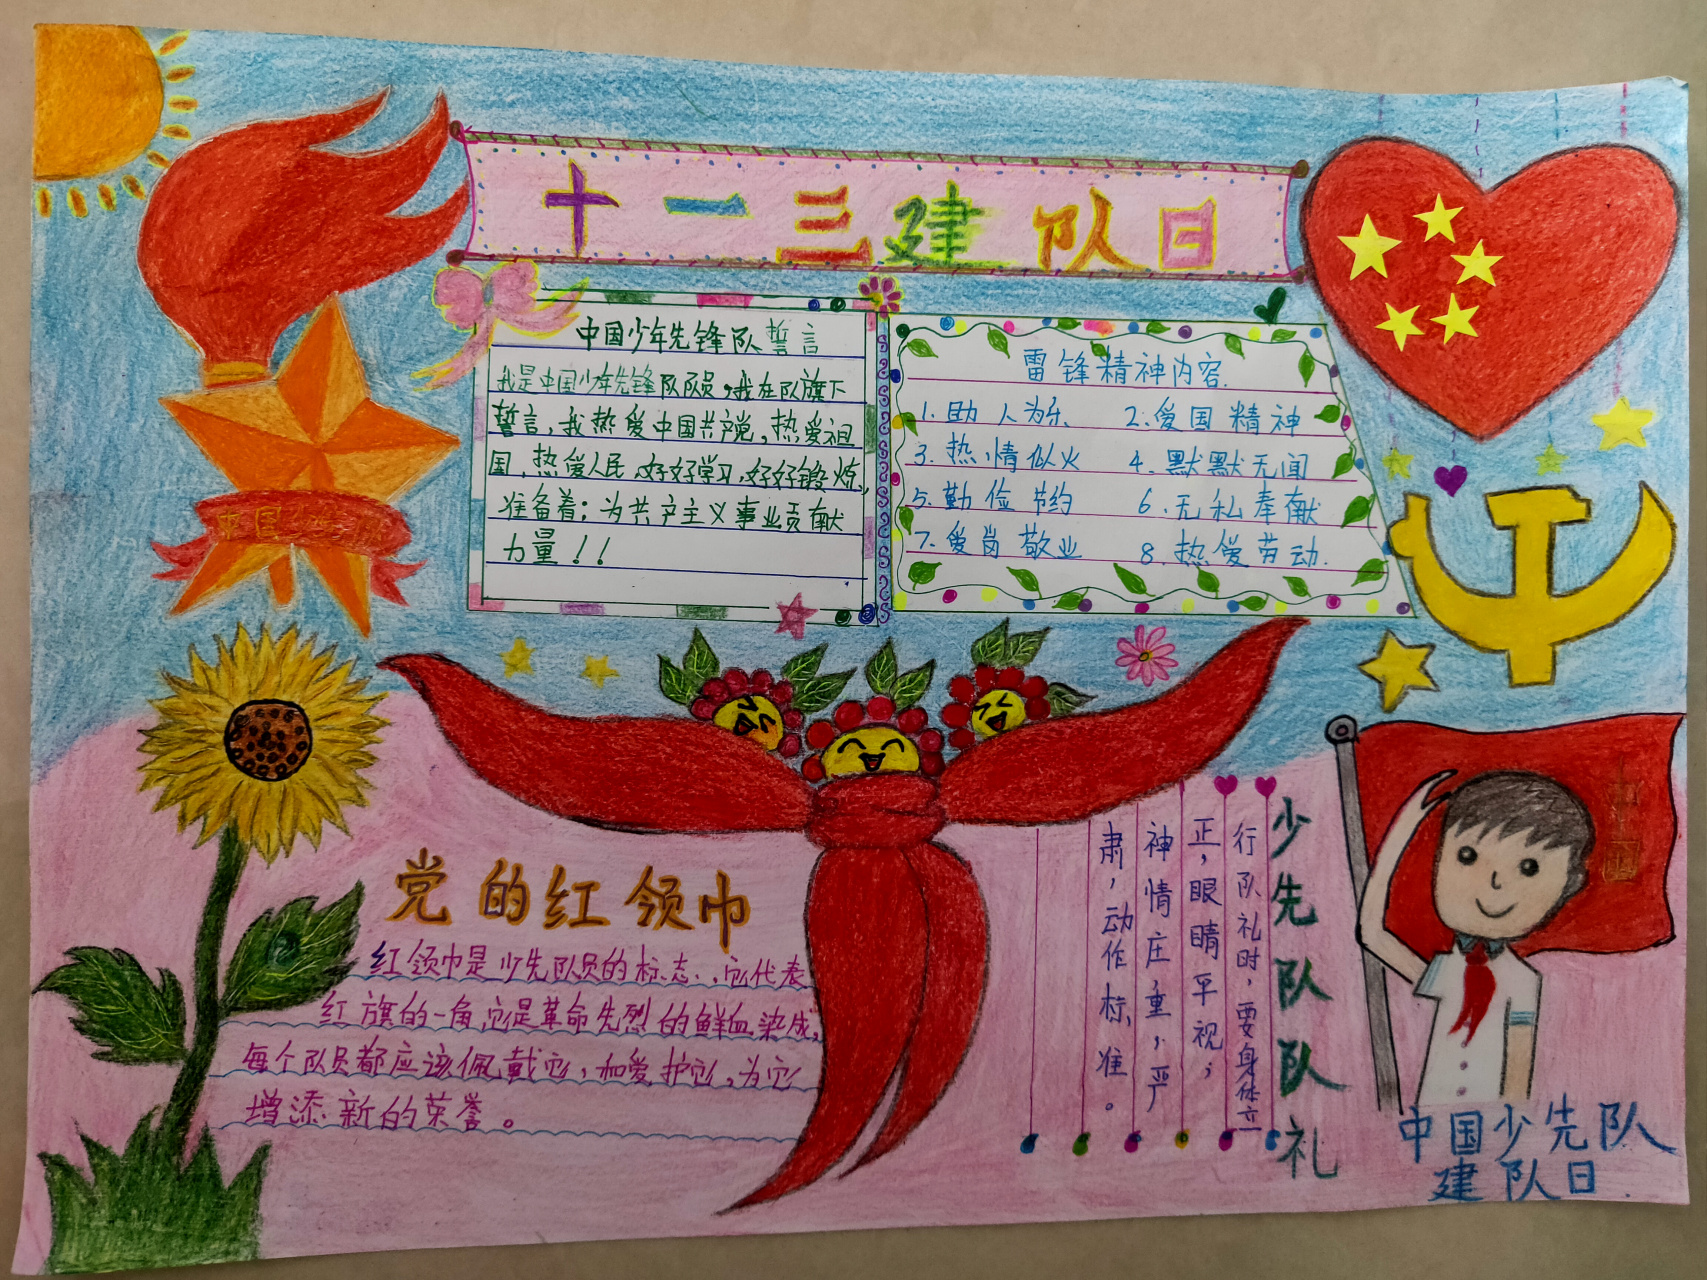 十一三建队日
中国少年先锋队誓言
我是中国少年先锋队队员，我在队旗下
誓言，我热爱中国共产党，热爱祖
国，热爱人民，好好学习，好好锻炼，
准备着；为共产主义事业贡献
力量！！
雷锋精神内容
1. 助人为乐 2. 爱国精神
3. 热情似火 4. 默默无闻
5. 勤俭节约 6. 无私奉献
7. 爱岗敬业 8. 热爱劳动.
党的红领巾
红领巾是少先队员的标志，它代表
红旗的一角，它是革命先烈的鲜血染成，
每个队员都应该佩戴它，和爱护它，为它
增添新的荣誉。
少先队队礼
行队礼时，要身体立
正，眼睛平视；
神情庄重，严
肃，动作标准。
中国少先队
建队日